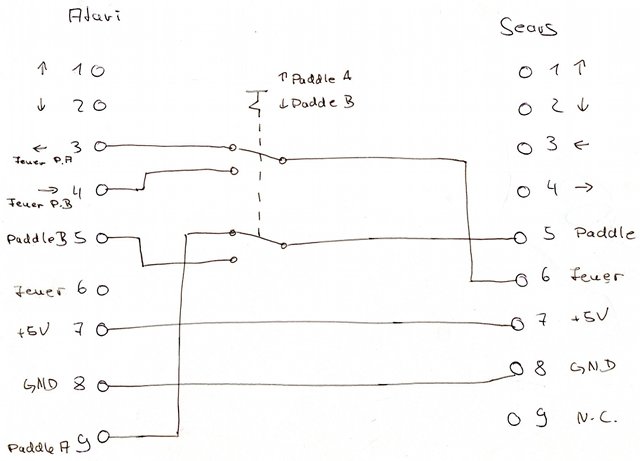 Atari
Sears
↑ 1
↓ 2
← 3
Feuer P.A
→ 4
Feuer P.B
Paddle B 5
Feuer 6
+5V 7
GND 8
Paddle A 9
↑ Paddle A
↓ Padde B
1 ↑
2 ↓
3 ←
4 →
5 Paddle
6 Feuer
7 +5V
8 GND
9 N.C.